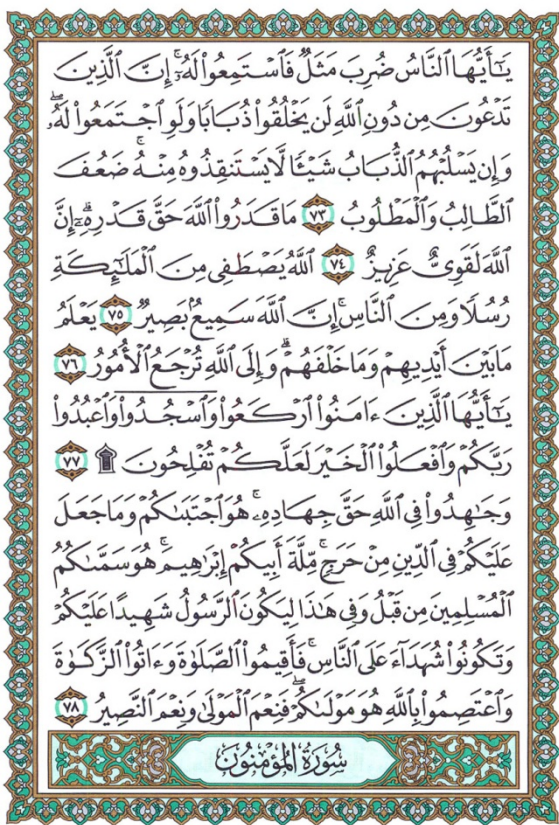 يَٰٓأَيُّهَا ٱلنَّاسُ ضُرِبَ مَثَلٌ فَٱسْتَمِعُوا۟ لَهُۥٓ ۚ إِنَّ ٱلَّذِينَ
تَدْعُونَ مِن دُونِ ٱللَّهِ لَن يَخْلُقُوا۟ ذُبَابًا وَلَوِ ٱجْتَمَعُوا۟ لَهُۥ ۖ
وَإِن يَسْلُبْهُمُ ٱلذُّبَابُ شَيْـًٔا لَّا يَسْتَنقِذُوهُ مِنْهُ ۚ ضَعُفَ
ٱلطَّالِبُ وَٱلْمَطْلُوبُ ٧٣ مَا قَدَرُوا۟ ٱللَّهَ حَقَّ قَدْرِهِۦٓ ۗ إِنَّ
ٱللَّهَ لَقَوِىٌّ عَزِيزٌ ٧٤ ٱللَّهُ يَصْطَفِى مِنَ ٱلْمَلَٰٓئِكَةِ
رُسُلًا وَمِنَ ٱلنَّاسِ ۚ إِنَّ ٱللَّهَ سَمِيعٌۢ بَصِيرٌ ٧٥ يَعْلَمُ
مَا بَيْنَ أَيْدِيهِمْ وَمَا خَلْفَهُمْ ۗ وَإِلَى ٱللَّهِ تُرْجَعُ ٱلْأُمُورُ ٧٦
يَٰٓأَيُّهَا ٱلَّذِينَ ءَامَنُوا۟ ٱرْكَعُوا۟ وَٱسْجُدُوا۟ وَٱعْبُدُوا۟
رَبَّكُمْ وَٱفْعَلُوا۟ ٱلْخَيْرَ لَعَلَّكُمْ تُفْلِحُونَ ۩ ٧٧
وَجَٰهِدُوا۟ فِى ٱللَّهِ حَقَّ جِهَادِهِۦ ۚ هُوَ ٱجْتَبَىٰكُمْ وَمَا جَعَلَ
عَلَيْكُمْ فِى ٱلدِّينِ مِنْ حَرَجٍ ۚ مِّلَّةَ أَبِيكُمْ إِبْرَٰهِيمَ ۚ هُوَ سَمَّىٰكُمُ
ٱلْمُسْلِمِينَ مِن قَبْلُ وَفِى هَٰذَا لِيَكُونَ ٱلرَّسُولُ شَهِيدًا عَلَيْكُمْ
وَتَكُونُوا۟ شُهَدَآءَ عَلَى ٱلنَّاسِ ۚ فَأَقِيمُوا۟ ٱلصَّلَوٰةَ وَءَاتُوا۟ ٱلزَّكَوٰةَ
وَٱعْتَصِمُوا۟ بِٱللَّهِ هُوَ مَوْلَىٰكُمْ ۖ فَنِعْمَ ٱلْمَوْلَىٰ وَنِعْمَ ٱلنَّصِيرُ ٧٨
سُورَةُ المُؤْمِنُون